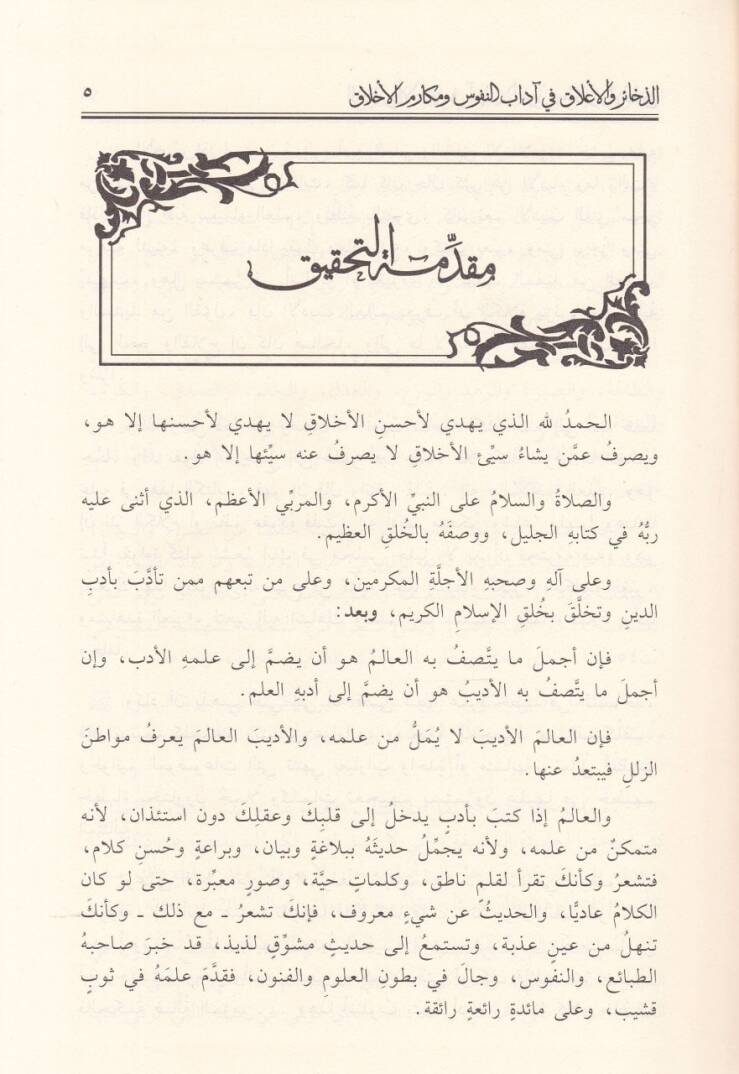 الذخائر والأعلاق في آداب النفوس ومكارم الأخلاق ٥
مقدِّمة التحقيق
الحمدُ لله الذي يهدي لأحسنِ الأخلاقِ لا يهدي لأحسنها إلا هو،
ويصرفُ عمَّن يشاءُ سيِّئ الأخلاقِ لا يصرفُ عنه سيِّئها إلا هو.
والصلاةُ والسلامُ على النبيِّ الأكرم، والمربِّي الأعظم، الذي أثنى عليه
ربُّهُ في كتابهِ الجليل، ووصفَهُ بالخُلقِ العظيم.
وعلى آلهِ وصحبهِ الأجلَّةِ المكرمين، وعلى من تبعهم ممن تأدَّبَ بأدبِ
الدينِ وتخلَّقَ بخُلقِ الإسلامِ الكريم، وبعد:
فإن أجملَ ما يتَّصفُ به العالمُ هو أن يضمَّ إلى علمهِ الأدب، وإن
أجملَ ما يتَّصفُ به الأديبُ هو أن يضمَّ إلى أدبهِ العلم.
فإن العالمَ الأديبَ لا يُمَلُّ من علمه، والأديبَ العالمَ يعرفُ مواطنَ
الزللِ فيبتعدُ عنها.
والعالمُ إذا كتبَ بأدبٍ يدخلُ إلى قلبِكَ وعقلِكَ دون استئذان، لأنه
متمكنٌ من علمه، ولأنه يجمِّلُ حديثَهُ ببلاغةٍ وبيان، وبراعةٍ وحُسنِ كلام،
فتشعرُ وكأنكَ تقرأ لقلمٍ ناطق، وكلماتٍ حيَّة، وصورٍ معبِّرة، حتى لو كان
الكلامُ عاديًّا، والحديثُ عن شيءٍ معروف، فإنكَ تشعرُ ـ مع ذلك ـ وكأنكَ
تنهلُ من عينٍ عذبة، وتستمعُ إلى حديثٍ مشوِّقٍ لذيذ، قد خبرَ صاحبهُ
الطبائع، والنفوس، وجالَ في بطونِ العلومِ والفنون، فقدَّمَ علمَهُ في ثوبٍ
قشيب، وعلى مائدةٍ رائعةٍ رائقة.